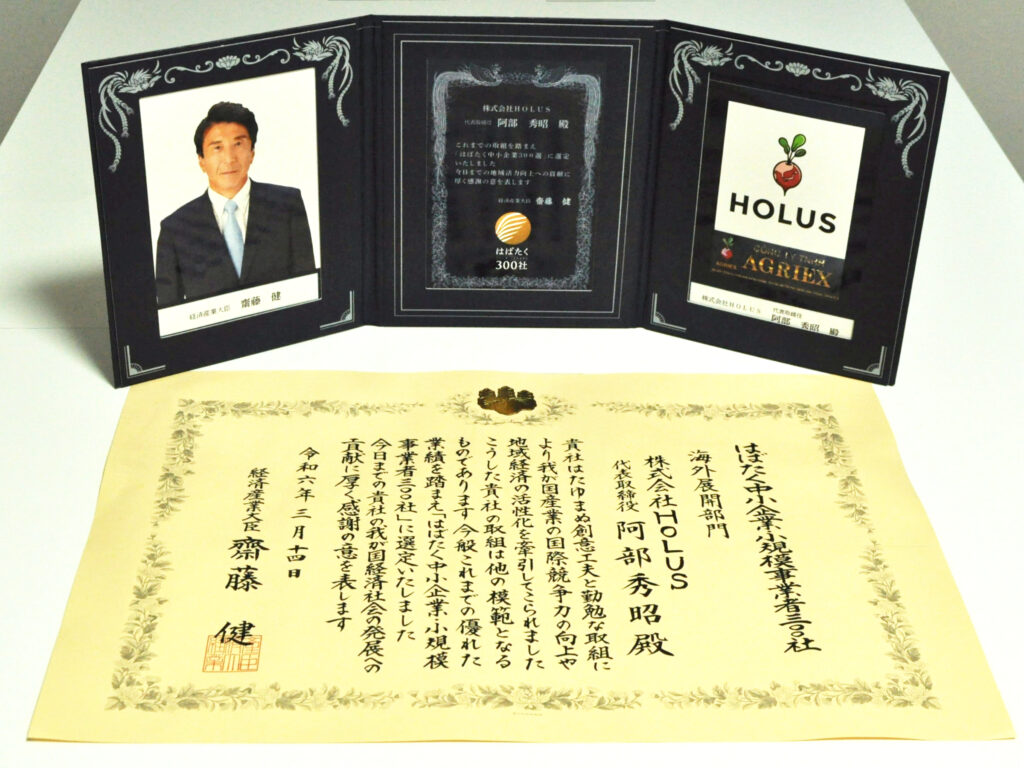 経済産業大臣 齋藤 健
株式会社HOLUS
代表取締役 阿部 秀昭 殿
これまでの取組を踏まえ
「はばたく中小企業300選」に選定
いたしました
今日までの地域活力向上への貢献に
厚く感謝の意を表します
経済産業大臣 齋藤 健
はばたく
300社
HOLUS
CÔNG TY TNHH
AGRIEX
AGRIEX
株式会社HOLUS 代表取締役 阿部 秀昭 殿
はばたく中小企業・小規模事業者三〇〇社
海外展開部門
株式会社HOLUS
代表取締役 阿部秀昭 殿
貴社はたゆまぬ創意工夫と勤勉な取組に
より我が国産業の国際競争力の向上や
地域経済の活性化を牽引してこられました
こうした貴社の取組は他の模範となる
ものであります 今般これまでの優れた
業績を踏まえ「はばたく中小企業・小規模
事業者三〇〇社」に選定いたしました
今日までの貴社の我が国経済社会の発展への
貢献に厚く感謝の意を表します
令和六年三月十四日
経済産業大臣 齋藤 健